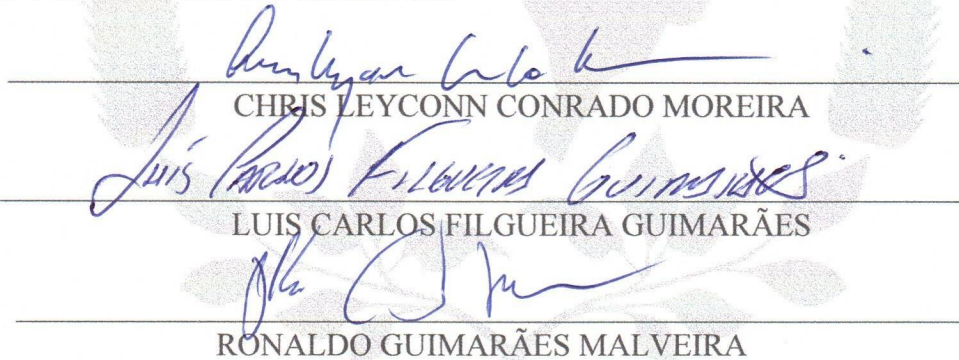 CHRIS LEYCONN CONRADO MOREIRA
Luis Carlos Filgueira Guimarães
LUIS CARLOS FILGUEIRA GUIMARÃES
RONALDO GUIMARÃES MALVEIRA